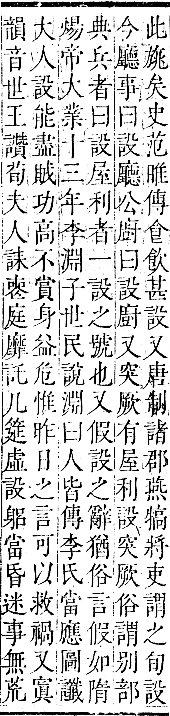 此矣史范雎傳食飲甚設又唐制諸郡燕犒將吏謂之旬設
今廳事曰設廳公廚曰設廚又突厥有屋利設突厥俗謂別部
典兵者曰設屋利者一設之號也又假設之辭猶俗言假如隋
煬帝大業十三年李淵子世民說淵曰人皆傳李氏當應圖讖
大人設能盡賊功高不賞身益危惟昨日之言可以救禍又寘
韻音世王讚荀夫人誄庭靡託几筵虛設軀當昏迷事無荒